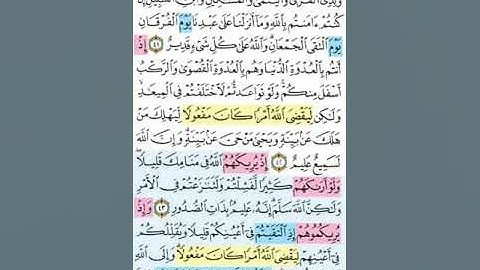 وَلِذِى ٱلْقُرْبَىٰ وَٱلْيَتَٰمَىٰ وَٱلْمَسَٰكِينِ وَٱبْنِ ٱلسَّبِيلِ إِن
كُنتُمْ ءَامَنتُم بِٱللَّهِ وَمَآ أَنزَلْنَا عَلَىٰ عَبْدِنَا يَوْمَ ٱلْفُرْقَانِ
يَوْمَ ٱلْتَقَى ٱلْجَمْعَانِ ۗ وَٱللَّهُ عَلَىٰ كُلِّ شَىْءٍ قَدِيرٌ ٤١ إِذْ
أَنتُم بِٱلْعُدْوَةِ ٱلدُّنْيَا وَهُم بِٱلْعُدْوَةِ ٱلْقُصْوَىٰ وَٱلرَّكْبُ
أَسْفَلَ مِنكُمْ ۚ وَلَوْ تَوَاعَدتُّمْ لَٱخْتَلَفْتُمْ فِى ٱلْمِيعَٰدِ ۙ
وَلَٰكِن لِّيَقْضِىَ ٱللَّهُ أَمْرًا كَانَ مَفْعُولًا لِّيَهْلِكَ مَنْ
هَلَكَ عَنۢ بَيِّنَةٍ وَيَحْيَىٰ مَنْ حَىَّ عَنۢ بَيِّنَةٍ ۗ وَإِنَّ ٱللَّهَ
لَسَمِيعٌ عَلِيمٌ ٤٢ إِذْ يُرِيكَهُمُ ٱللَّهُ فِى مَنَامِكَ قَلِيلًا ۖ
وَلَوْ أَرَىٰكَهُمْ كَثِيرًا لَّفَشِلْتُمْ وَلَتَنَٰزَعْتُمْ فِى ٱلْأَمْرِ
وَلَٰكِنَّ ٱللَّهَ سَلَّمَ ۗ إِنَّهُۥ عَلِيمٌۢ بِذَاتِ ٱلصُّدُورِ ٤٣ وَإِذْ
يُرِيكُمُوهُمْ إِذِ ٱلْتَقَيْتُمْ فِىٓ أَعْيُنِكُمْ قَلِيلًا وَيُقَلِّلُكُمْ
فِىٓ أَعْيُنِهِمْ لِيَقْضِىَ ٱللَّهُ أَمْرًا كَانَ مَفْعُولًا ۗ وَإِلَى ٱللَّهِ